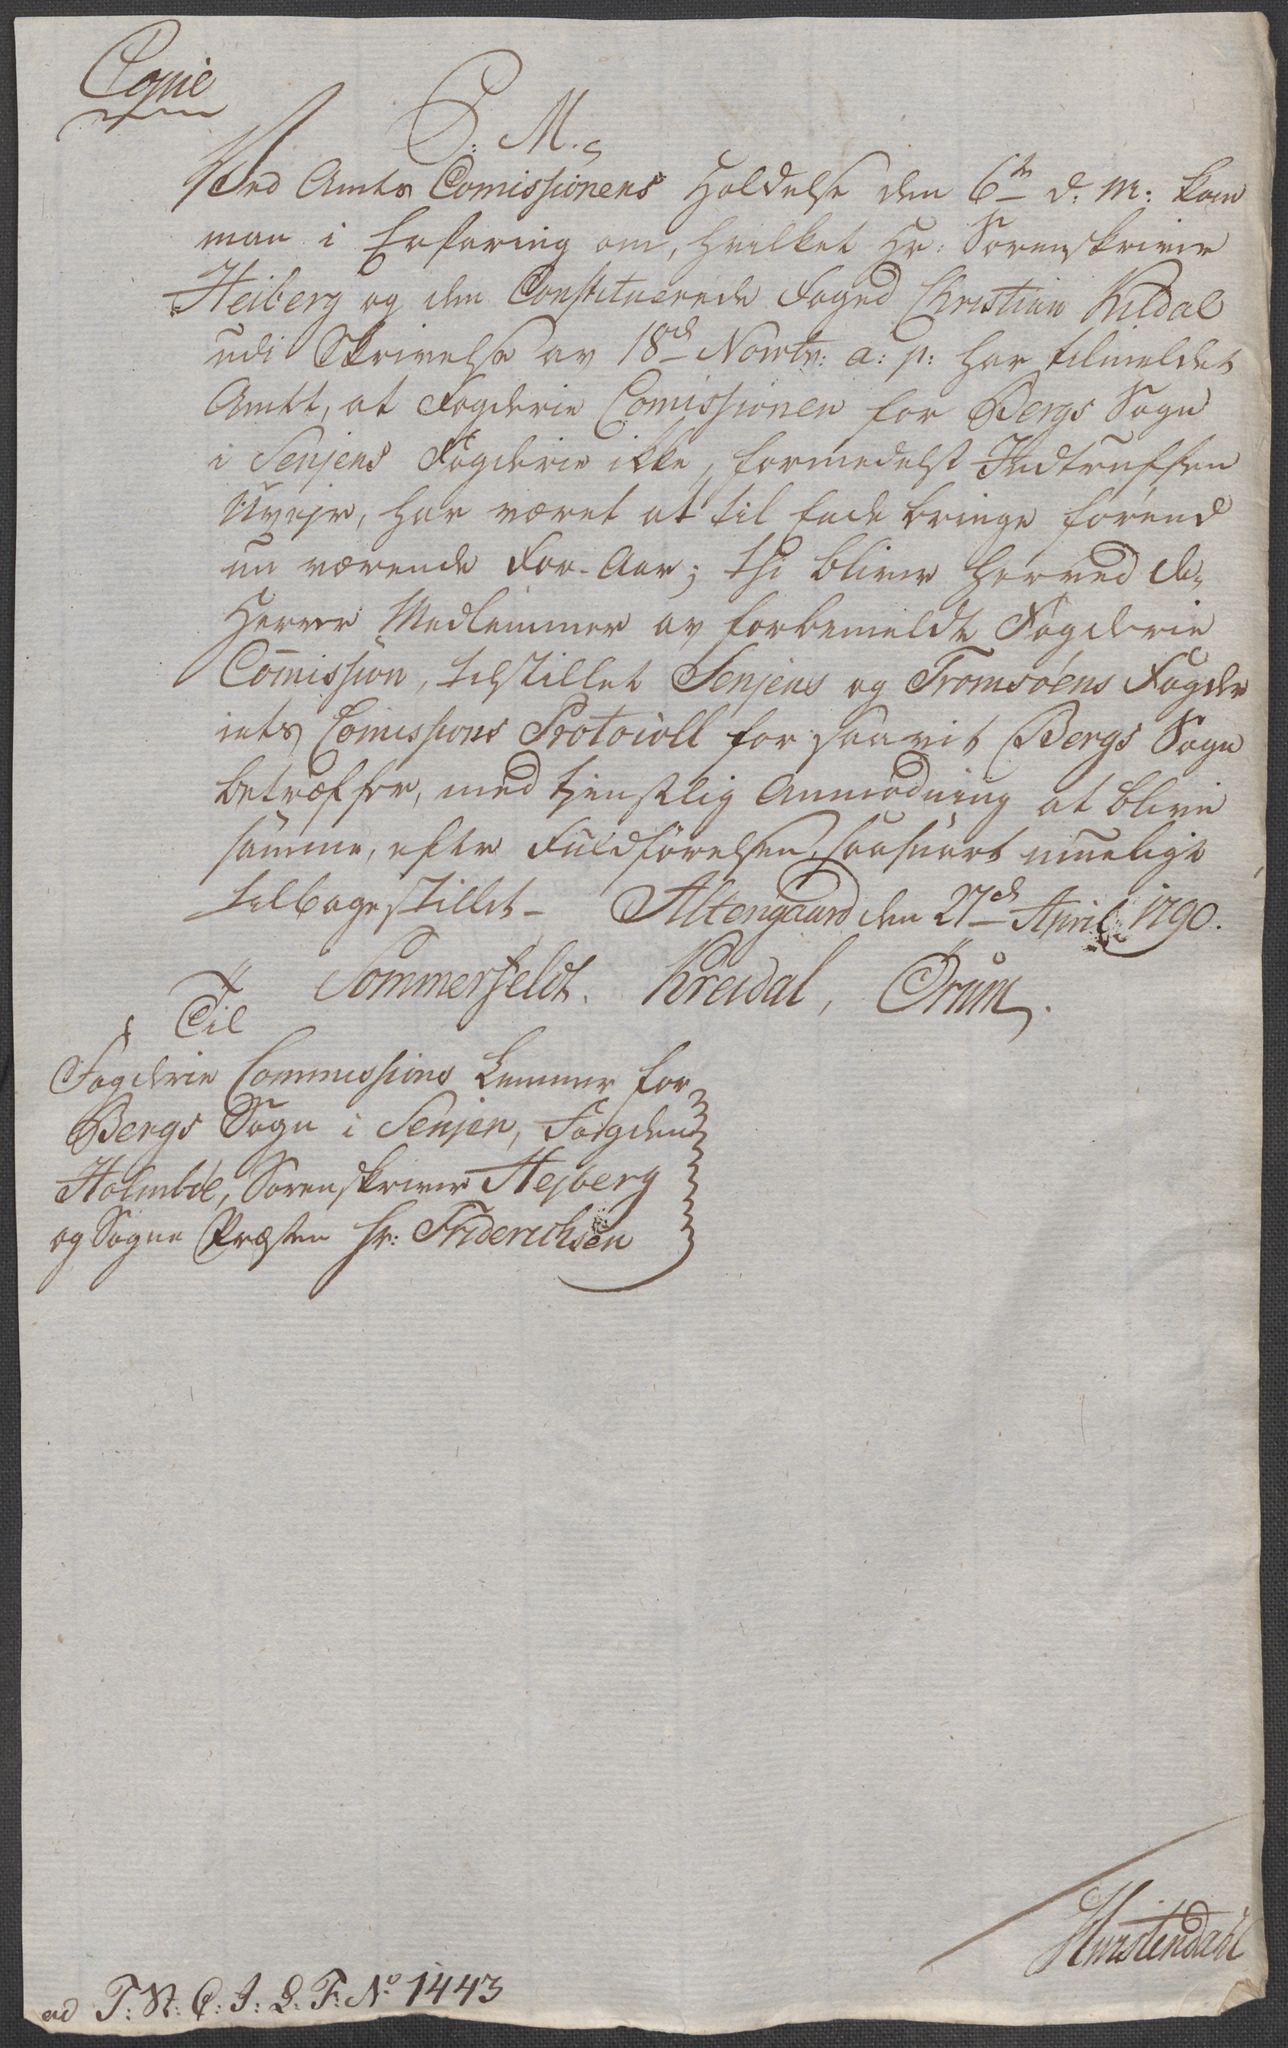 Copie
P. M.
Ved Amts Comissionens Holdelse den 6te d: M: kom
man i Erfaring om, hvilket Hr: Sorenskriver
Heiberg og den Constituerede Foged Christian Kildal
udi Skrivelse av 18d Novbr: a: p: har tilmeldet
Amtet, at Fogderie Comissionen for Bergs Sogn
i Senjens Fogderie ikke, formedelst Indtruffen
Uvejr, har været at til Ende bringe førend
nu værende For-Aar; thi bliver herved de
Herrer Medlemmer av forbemeldte Fogderie
Comission, tilstillet Senjens og Tromsöens Fogde
riets Comissions Protocoll for saavit Bergs Sogn
betræffer, med tjenstlig Anmodning at blive
samme, efter Fuldførelsen, saasnart mueligt
tilbagestillet – Altengaard den 27d April 1790.
Sommerfeldt. Kreidal, Örum.
Til
Fogderie Commissions Lemmer for
Bergs Sogn i Senjen, Fogden
Holmboe, Sorenskriver Hejberg
og Sogne Præsten Hr: Friderichsen
ad T: R: C: J: L: F: No 1443